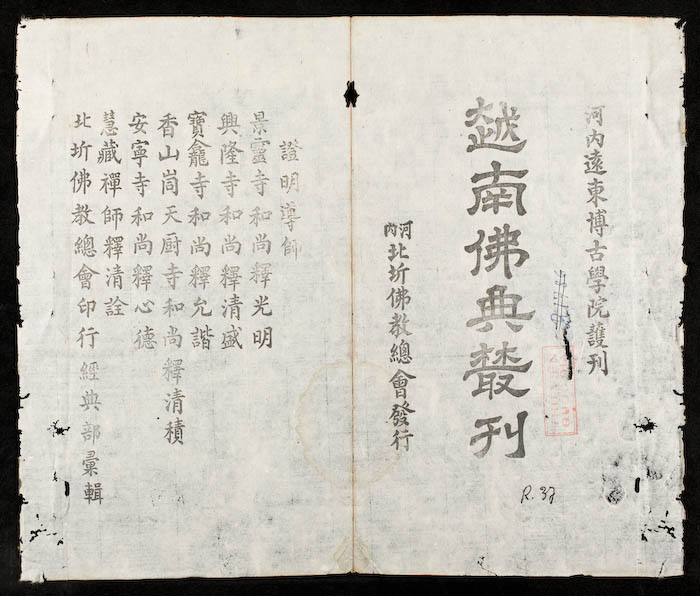 河内遠東博古學院護刊
越南佛典叢刊
河内北圻佛教總會發行
R.37
證明導師
景靈寺和尚釋光明
興隆寺和尚釋清盛
寶龕寺和尚釋允諧
香山峝天厨寺和尚釋清積
安寧寺和尚釋心德
慧藏禪師釋清詮
北圻佛教總會印行經典部彙輯